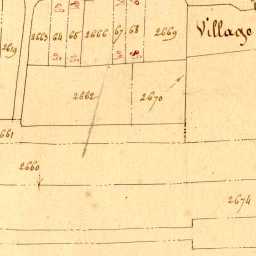 2619 2663 64 65 2666 67 68 2669 Village
2662 2670
2661
2660
2674